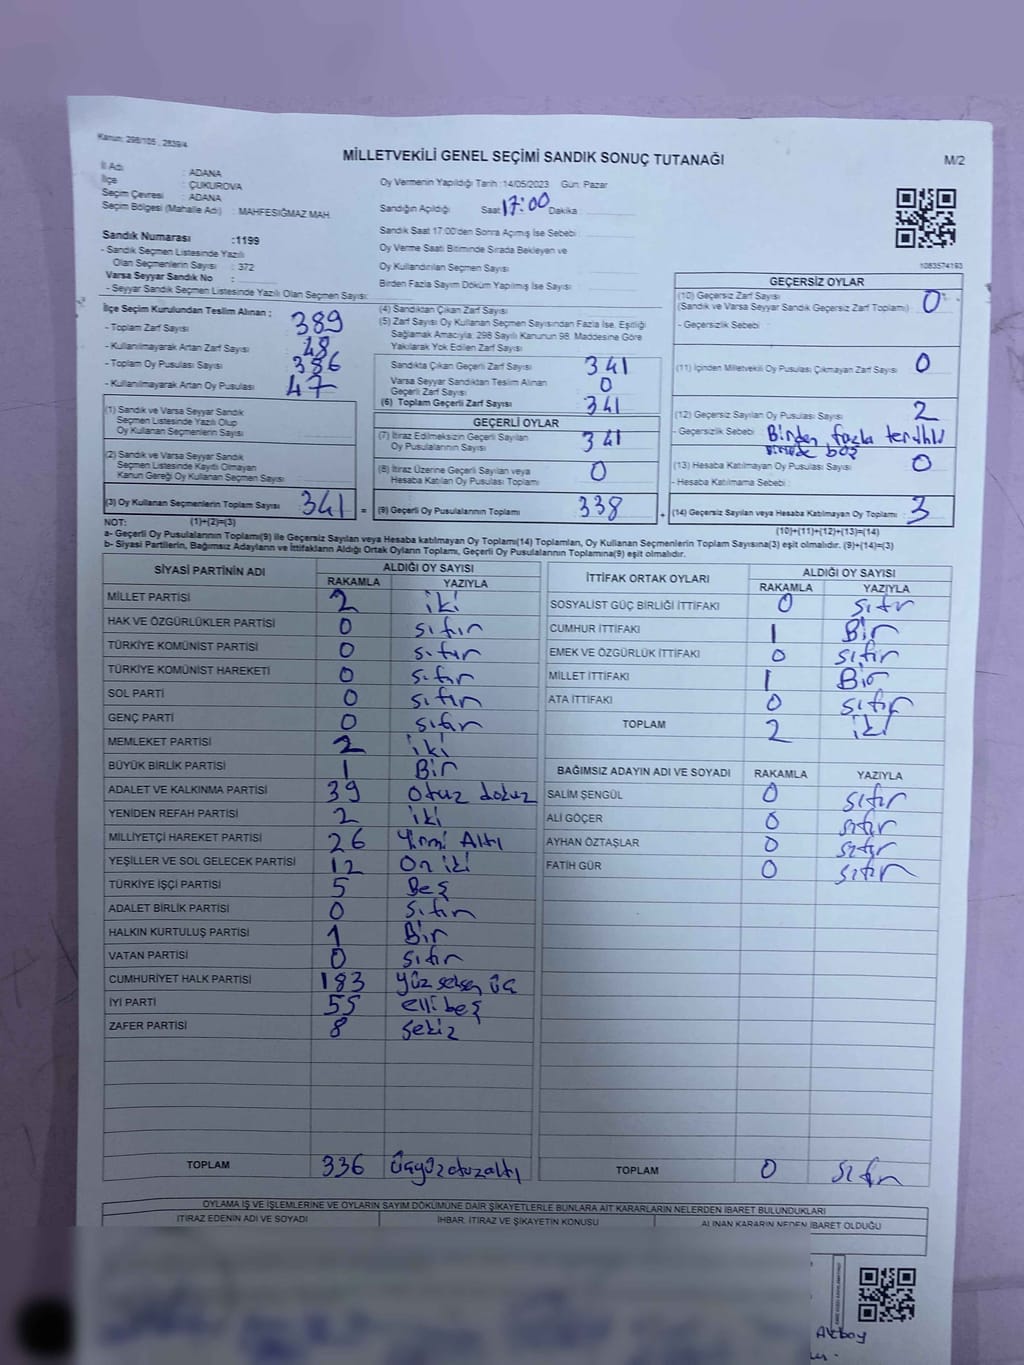 Kanun: 298/105 , 2839/4
MİLLETVEKİLİ GENEL SEÇİMİ SANDIK SONUÇ TUTANAĞI
M/2
İl Adı : ADANA
İlçe : ÇUKUROVA
Seçim Çevresi : ADANA
Seçim Bölgesi (Mahalle Adı) : MAHFESIĞMAZ MAH.
Sandık Numarası :1199
- Sandık Seçmen Listesinde Yazılı
Olan Seçmenlerin Sayısı : 372
Varsa Seyyar Sandık No :
- Seyyar Sandık Seçmen Listesinde Yazılı Olan Seçmen Sayısı:
Oy Vermenin Yapıldığı Tarih :14/05/2023 Gün: Pazar
Sandığın Açıldığı Saat 17:00 Dakika
Sandık Saat 17:00'den Sonra Açımış İse Sebebi :
Oy Verme Saati Bitiminde Sırada Bekleyen ve
Oy Kullandırılan Seçmen Sayısı
Birden Fazla Sayım Döküm Yapılmış İse Sayısı :
1083574193
İlçe Seçim Kurulundan Teslim Alınan ;
- Toplam Zarf Sayısı 389
- Kullanılmayarak Artan Zarf Sayısı 48
- Toplam Oy Pusulası Sayısı 386
- Kullanılmayarak Artan Oy Pusulası 47
(1) Sandık ve Varsa Seyyar Sandık
Seçmen Listesinde Yazılı Olup
Oy Kullanan Seçmenlerin Sayısı
(2) Sandık ve Varsa Seyyar Sandık
Seçmen Listesinde Kayıtlı Olmayan
Kanun Gereği Oy Kullanan Seçmen Sayısı
(3) Oy Kullanan Seçmenlerin Toplam Sayısı 341 =
(4) Sandıktan Çıkan Zarf Sayısı
(5) Zarf Sayısı Oy Kullanan Seçmen Sayısından Fazla İse, Eşitliği
Sağlamak Amacıyla; 298 Sayılı Kanunun 98. Maddesine Göre
Yakılarak Yok Edilen Zarf Sayısı
Sandıkta Çıkan Geçerli Zarf Sayısı 341
Varsa Seyyar Sandıktan Teslim Alınan
Geçerli Zarf Sayısı 0
(6) Toplam Geçerli Zarf Sayısı 341
GEÇERLİ OYLAR
(7) İtiraz Edilmeksizin Geçerli Sayılan
Oy Pusulalarının Sayısı 341
(8) İtiraz Üzerine Geçerli Sayılan veya
Hesaba Katılan Oy Pusulası Toplamı 0
(9) Geçerli Oy Pusulalarının Toplamı 338 +
GEÇERSİZ OYLAR
(10) Geçersiz Zarf Sayısı
(Sandık ve Varsa Seyyar Sandık Geçersiz Zarf Toplamı) 0
- Geçersizlik Sebebi :
(11) İçinden Milletvekili Oy Pusulası Çıkmayan Zarf Sayısı 0
(12) Geçersiz Sayılan Oy Pusulası Sayısı 2
- Geçersizlik Sebebi : Birden fazla tercihli
boş
(13) Hesaba Katılmayan Oy Pusulası Sayısı 0
- Hesaba Katılmama Sebebi :
(14) Geçersiz Sayılan veya Hesaba Katılmayan Oy Toplamı 3
NOT: (1)+(2)=(3)
(10)+(11)+(12)+(13)=(14)
a- Geçerli Oy Pusulalarının Toplamı(9) ile Geçersiz Sayılan veya Hesaba katılmayan Oy Toplamı(14) Toplamları, Oy Kullanan Seçmenlerin Toplam Sayısına(3) eşit olmalıdır. (9)+(14)=(3)
b- Siyasi Partilerin, Bağımsız Adayların ve İttifakların Aldığı Ortak Oyların Toplamı, Geçerli Oy Pusulalarının Toplamına(9) eşit olmalıdır.
SİYASİ PARTİNİN ADI ALDIĞI OY SAYISI
RAKAMLA YAZIYLA
MİLLET PARTİSİ 2 iki
HAK VE ÖZGÜRLÜKLER PARTİSİ 0 sıfır
TÜRKİYE KOMÜNİST PARTİSİ 0 sıfır
TÜRKİYE KOMÜNİST HAREKETİ 0 sıfır
SOL PARTİ 0 sıfır
GENÇ PARTİ 0 sıfır
MEMLEKET PARTİSİ 2 iki
BÜYÜK BİRLİK PARTİSİ 1 Bir
ADALET VE KALKINMA PARTİSİ 39 otuz dokuz
YENİDEN REFAH PARTİSİ 2 iki
MİLLİYETÇİ HAREKET PARTİSİ 26 Yirmi Altı
YEŞİLLER VE SOL GELECEK PARTİSİ 12 On iki
TÜRKİYE İŞÇİ PARTİSİ 5 Beş
ADALET BİRLİK PARTİSİ 0 sıfır
HALKIN KURTULUŞ PARTİSİ 1 Bir
VATAN PARTİSİ 0 sıfır
CUMHURİYET HALK PARTİSİ 183 yüz seksen üç
İYİ PARTİ 55 elli beş
ZAFER PARTİSİ 8 Sekiz
TOPLAM 336 üçyüzotuzaltı
İTTİFAK ORTAK OYLARI ALDIĞI OY SAYISI
RAKAMLA YAZIYLA
SOSYALİST GÜÇ BİRLİĞİ İTTİFAKI 0 sıfır
CUMHUR İTTİFAKI 1 Bir
EMEK VE ÖZGÜRLÜK İTTİFAKI 0 sıfır
MİLLET İTTİFAKI 1 Bir
ATA İTTİFAKI 0 sıfır
TOPLAM 2 iki
BAĞIMSIZ ADAYIN ADI VE SOYADI RAKAMLA YAZIYLA
SALİM ŞENGÜL 0 sıfır
ALİ GÖÇER 0 sıfır
AYHAN ÖZTAŞLAR 0 sıfır
FATİH GÜR 0 sıfır
TOPLAM 0 sıfır
OYLAMA İŞ VE İŞLEMLERİNE VE OYLARIN SAYIM DÖKÜMÜNE DAİR ŞİKAYETLERLE BUNLARA AİT KARARLARIN NELERDEN İBARET BULUNDUKLARI
İTİRAZ EDENİN ADI VE SOYADI İHBAR, İTİRAZ VE ŞİKAYETİN KONUSU ALINAN KARARIN NEDEN İBARET OLDUĞU
Akboy